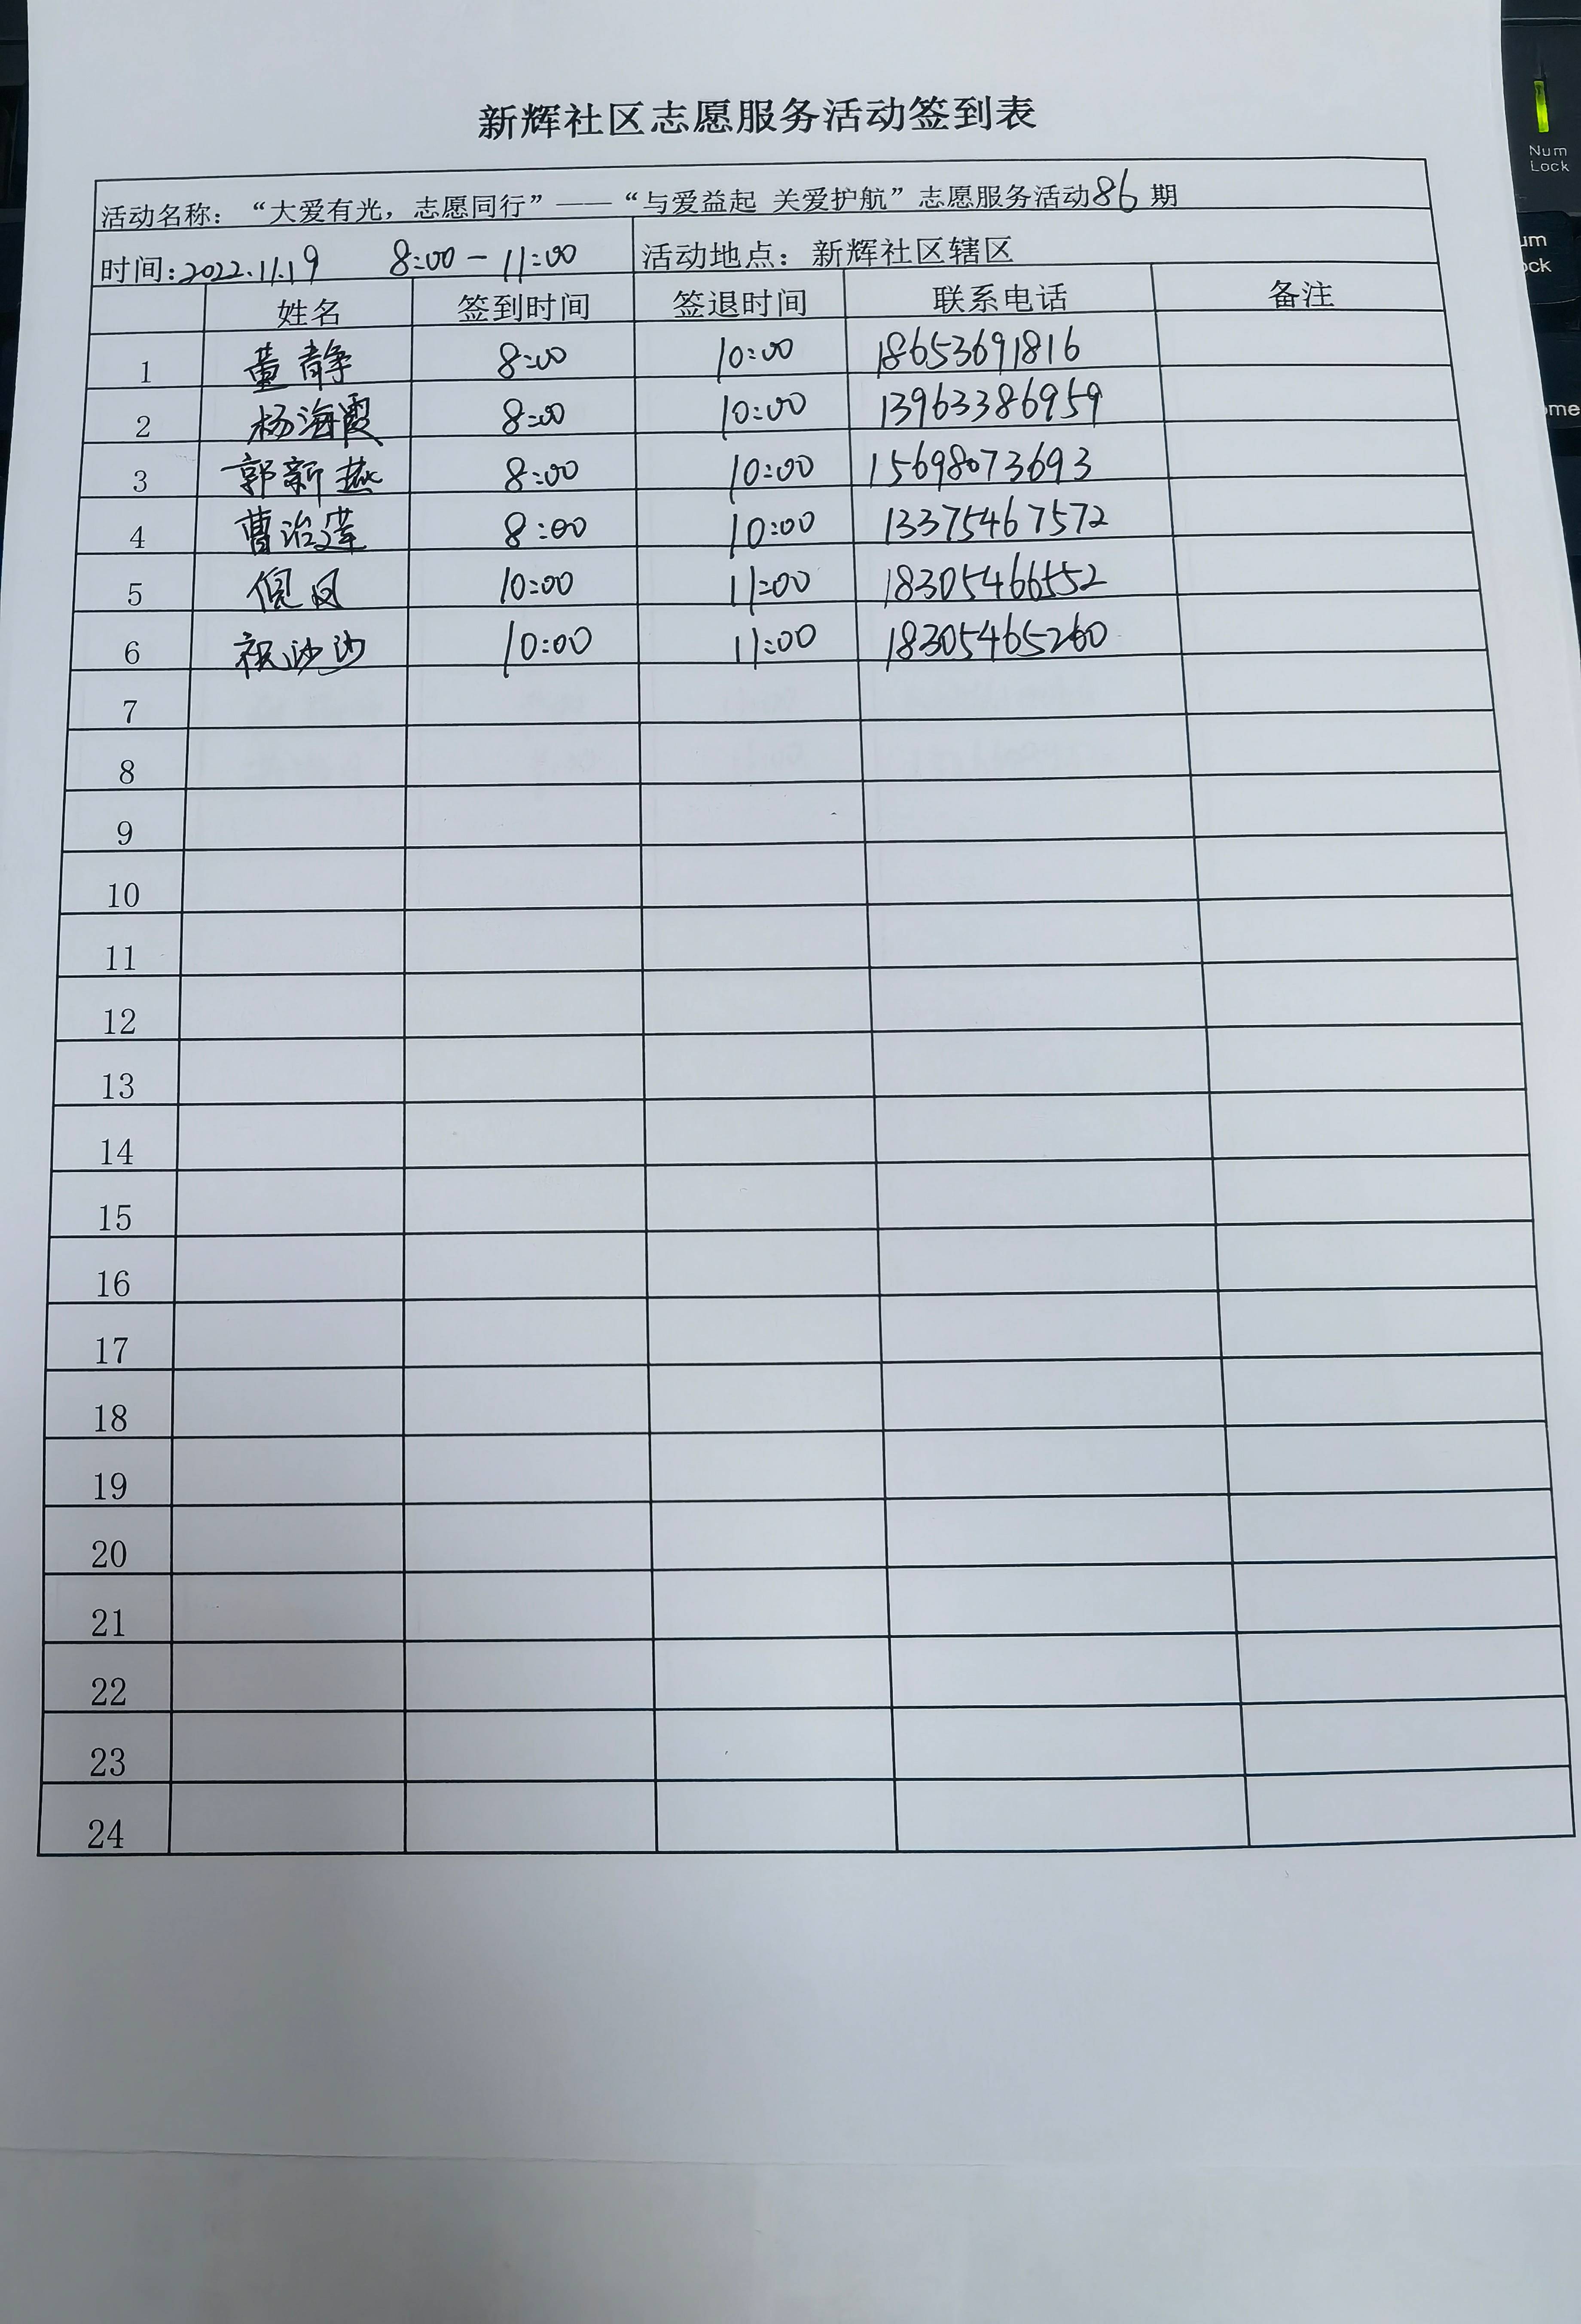 新辉社区志愿服务活动签到表
活动名称：“大爱有光，志愿同行”——“与爱益起 关爱护航”志愿服务活动86期
时间:2022.11.19 8:00-11:00 活动地点：新辉社区辖区
姓名 签到时间 签退时间 联系电话 备注
1 董静 8:00 10:00 18653691816
2 杨海霞 8:00 10:00 13963386959
3 郭新燕 8:00 10:00 15698073693
4 曹治莲 8:00 10:00 13375467572
5 倪凤 10:00 11:00 18305466552
6 祝沙沙 10:00 11:00 18305465260
7
8
9
10
11
12
13
14
15
16
17
18
19
20
21
22
23
24
Num
Lock